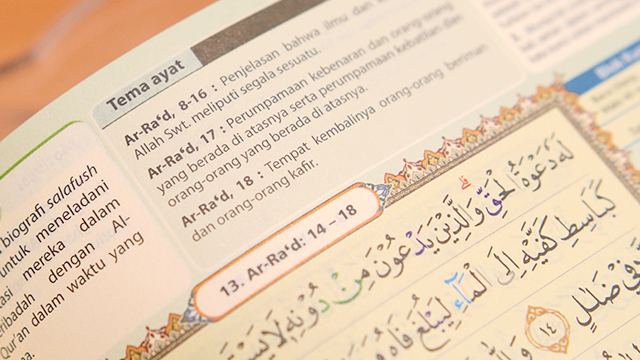 Tema ayat
Ar-Ra‘d, 8-16 : Penjelasan bahwa ilmu dan
Allah Swt. meliputi segala sesuatu.
Ar-Ra‘d, 17 : Perumpamaan kebenaran dan orang-orang
yang berada di atasnya serta perumpamaan kebatilan dan
orang-orang yang berada di atasnya.
Ar-Ra‘d, 18 : Tempat kembalinya orang-orang beriman
dan orang-orang kafir.
biografi salafush
untuk meneladani
mereka dalam
dengan Al-
Qur’an dalam waktu yang
13. Ar-Ra‘d: 14 – 18
لَهُ دَعْوَةُ الْحَقِّ وَالَّذِيْنَ يَدْعُوْنَ مِنْ دُوْنِهٖ لَا
كَبَاسِطِ كَفَّيْهِ اِلَى الْمَاۤءِ لِيَبْلُغَ فَاهُ
ضَلٰلٍ ١٤